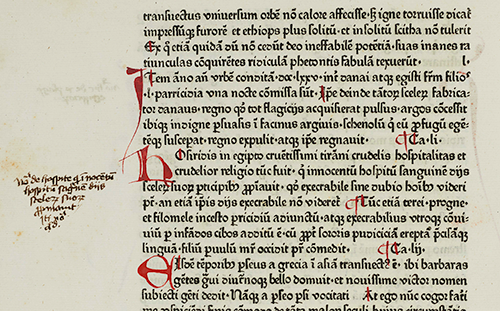 transuectus vniuersum orbē nõ calore affecisse. ꝫ igne torruisse dicat̃
impressūqꝫ furorē et ethiops plus solitū. et insolitū scitha nõ tulerit
Ex q̃ etiã quidã dū nõ cedūt deo ineffabilē potētiã. suas inanes ra
tiunculas cõquirētes ridiculã phetontis fabulã texuerūt. .l.
Item ãno añ vrbē conditã .dcc.lxxv. int̃ danai atqꝫ egisti fr̃m filios
.l. parricidia vna nocte cõmissa sūt. Ip̃e deinde tãtoꝝ sceleꝝ fabrica
tor danaus. regno qð tot flagicijs acquisierat pulsus. argos cõcessit
ibiqꝫ indigne ꝑsuasis ĩ facinus argiuis. schenolū q̃ eū ꝓfugū egē
tēqꝫ susceꝑat. regno expulit. atqꝫ ip̃e regnauit. ¶Ca.li.
Bosiridis in egipto cruētissimi tirãni crudelis hospitalitas et
crudelior religio tūc fuit. q̃ innocentū hospitū sanguinē dijs
sceleꝝ suoꝝ ꝑticipibꝰ ꝓpinauit. qð execrabile sine dubio hoĩbꝰ videri
an etiã ip̃is dijs execrabile nõ videret̃ ¶Tūc etiã terei. progne.
et filomele incesto pricidiū adiunctū. atqꝫ execrabilius vtroqꝫ cõui
uiū ꝑ infãdos cibos additū ē. cū ꝓpt̃ soris pudiciciã ereptã p̃cisãqꝫ
linguã. filiū puulū mr̃ occidit pr̃ cõmedit. ¶Ca.lij.
Eisdē tēporibꝰ perseus a grecia ĩ asiã transuectꝰ ē. ibi barbaras
gētes ḡui diurnoqꝫ bello domuit. et nouissime victor nomen
subiecti gēti dedit. Nãqꝫ a pseo psi vocitati At ego nūc cogor fateri
No. de hospite q̃ inocētū
hospitū sãguinē dijs
sceloꝝ suoꝝ
ꝓpinauit